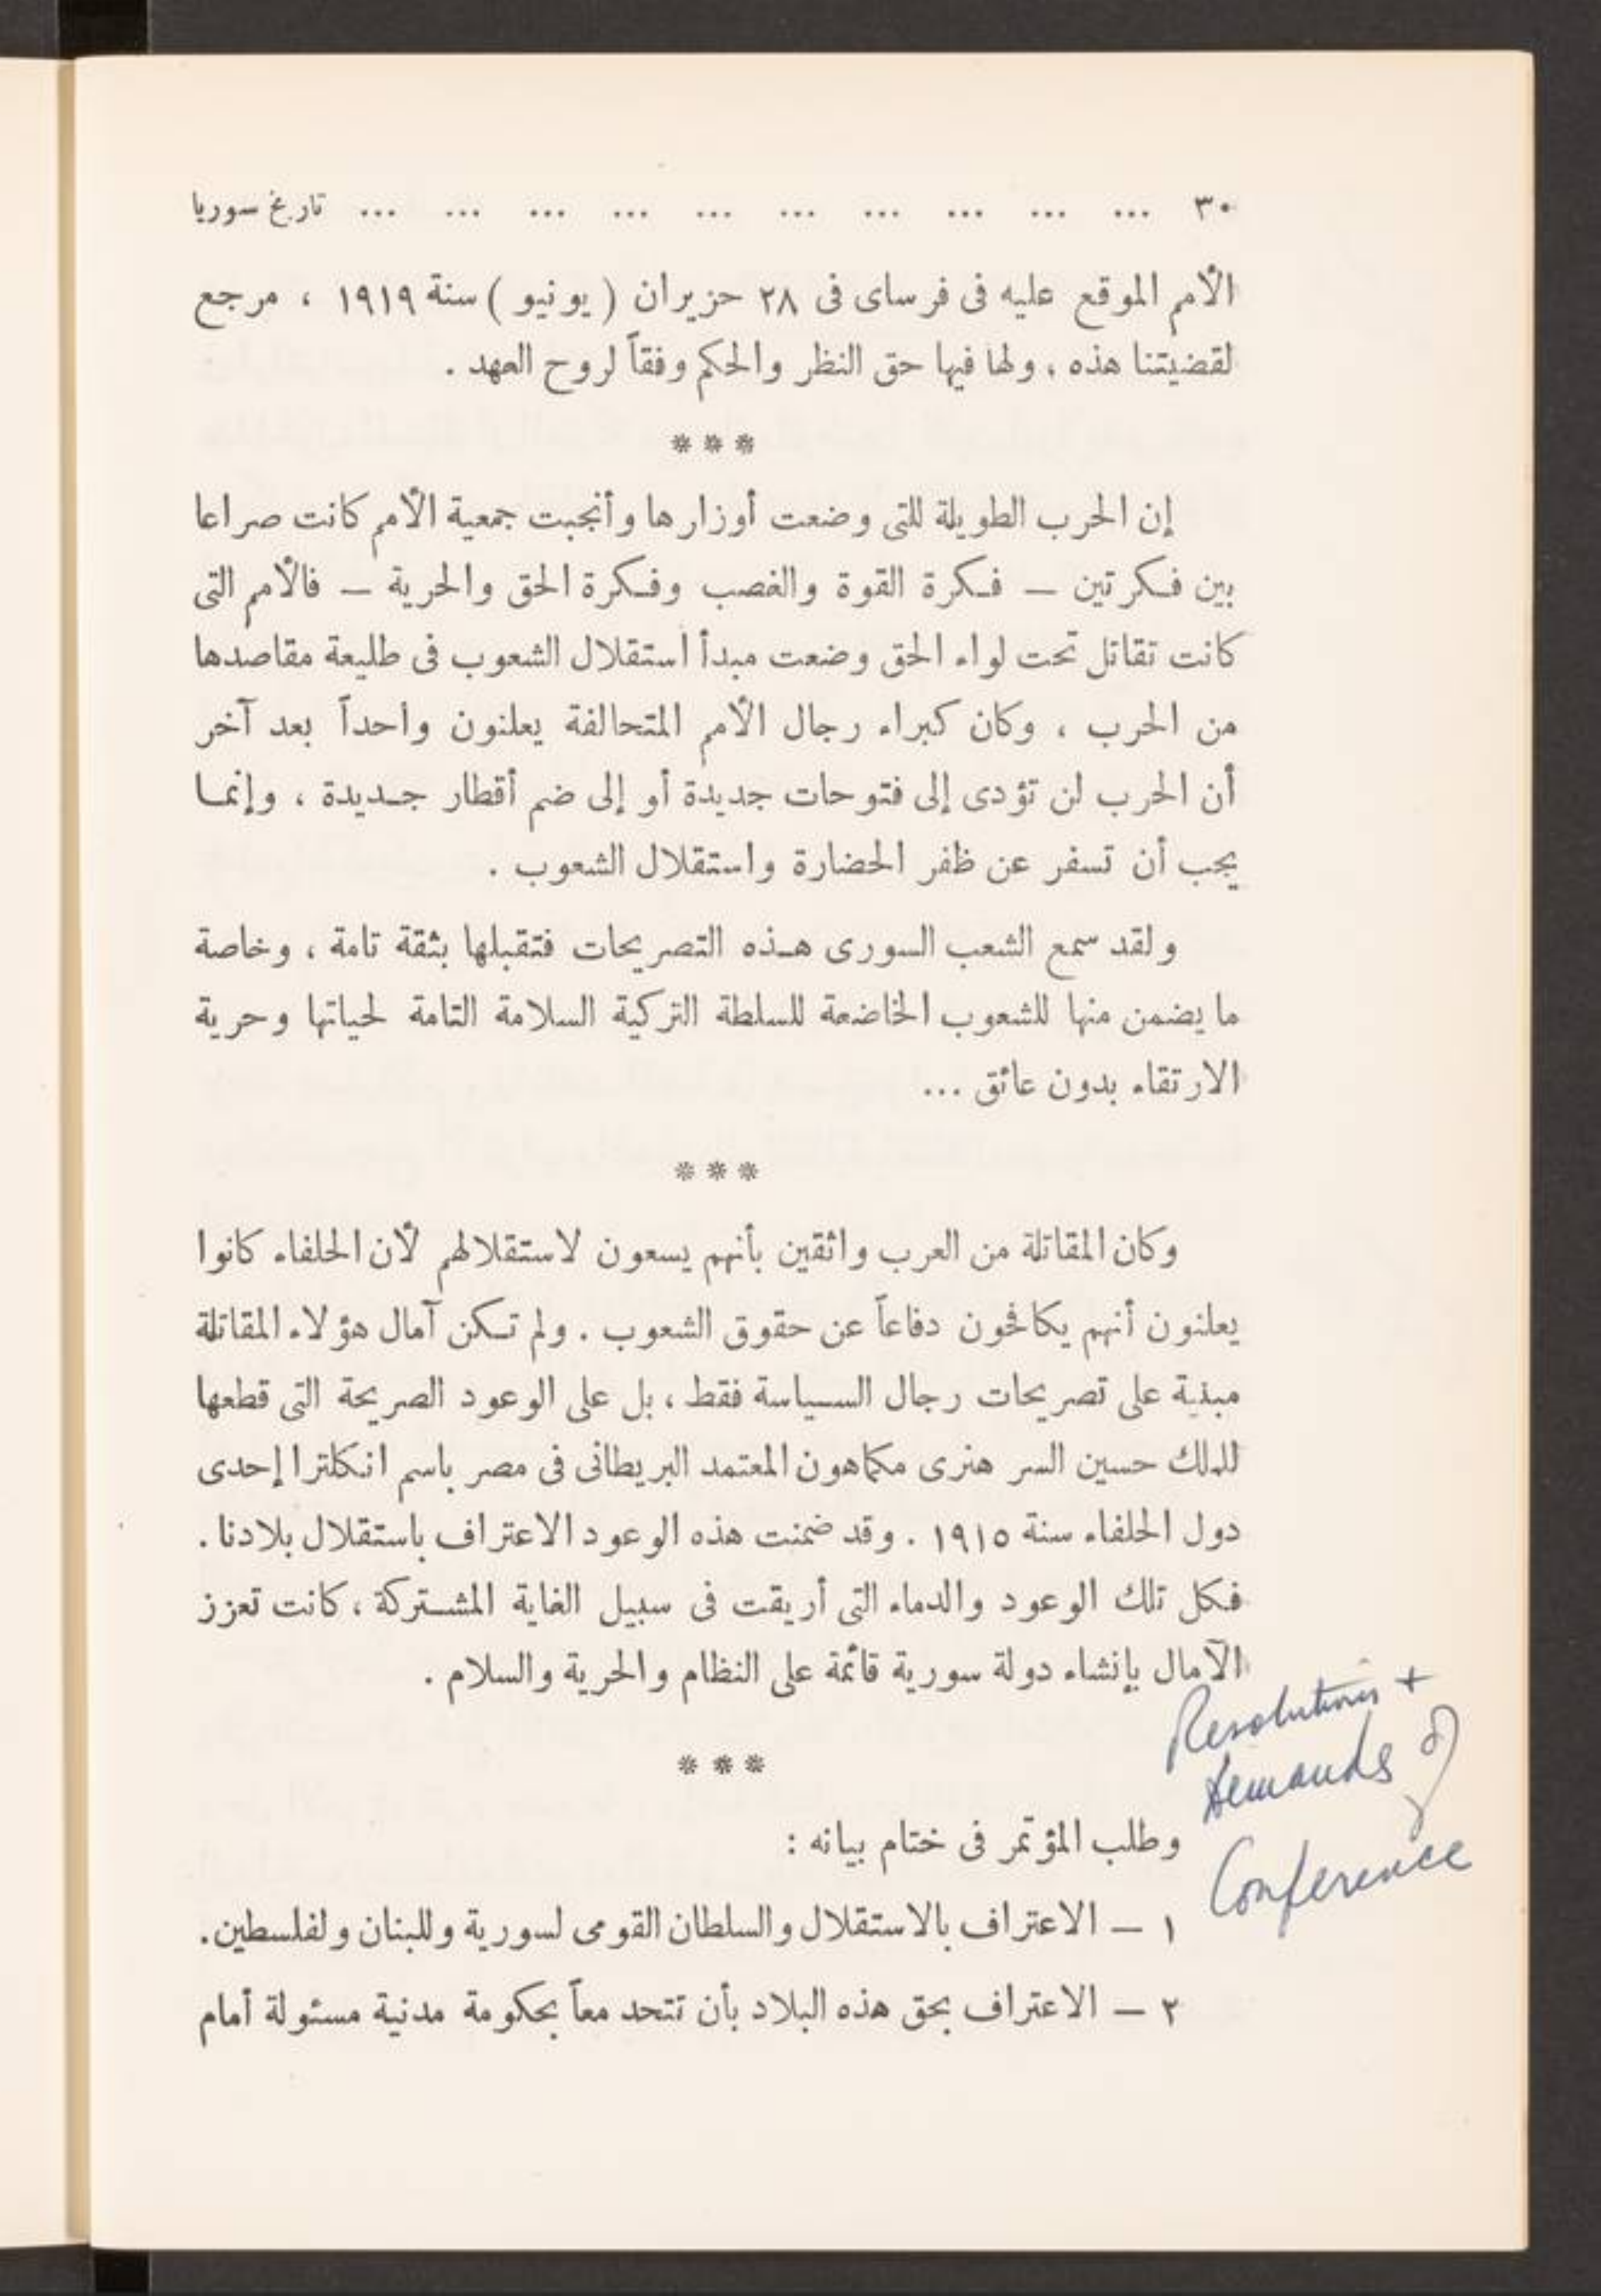 ٣٠ ... ... ... ... ... ... ... ... ... ... تاريخ سوريا
الأمم الموقع عليه فى فرساى فى ٢٨ حزيران ( يونيو ) سنة ١٩١٩ ، مرجع
لقضيتنا هذه ، ولها فيها حق النظر والحكم وفقاً لروح العهد .
***
إن الحرب الطويلة للتى وضعت أوزارها وأنجبت جمعية الأمم كانت صراعا
بين فكرتين — فكرة القوة والغصب وفكرة الحق والحرية — فالأمم التى
كانت تقاتل تحت لواء الحق وضعت مبدأ استقلال الشعوب فى طليعة مقاصدها
من الحرب ، وكان كبراء رجال الأمم المتحالفة يعلنون واحداً بعد آخر
أن الحرب لن تؤدى إلى فتوحات جديدة أو إلى ضم أقطار جديدة ، وإنما
يجب أن تسفر عن ظفر الحضارة واستقلال الشعوب .
ولقد سمع الشعب السورى هذه التصريحات فتقبلها بثقة تامة ، وخاصة
ما يضمن منها للشعوب الخاضعة للسلطة التركية السلامة التامة لحياتها وحرية
الارتقاء بدون عائق ...
***
وكان المقاتلة من العرب واثقين بأنهم يسعون لاستقلالهم لأن الحلفاء كانوا
يعلنون أنهم يكافحون دفاعاً عن حقوق الشعوب . ولم تكن آمال هؤلاء المقاتلة
مبنية على تصريحات رجال السياسة فقط ، بل على الوعود الصريحة التى قطعها
للملك حسين السر هنرى مكماهون المعتمد البريطانى فى مصر باسم انكلترا إحدى
دول الحلفاء سنة ١٩١٥ . وقد ضمنت هذه الوعود الاعتراف باستقلال بلادنا .
فكل تلك الوعود والدماء التى أريقت فى سبيل الغاية المشتركة ، كانت تعزز
الآمال بإنشاء دولة سورية قائمة على النظام والحرية والسلام .
***
Resolutions +
demands of
Conference
وطلب المؤتمر فى ختام بيانه :
١ — الاعتراف بالاستقلال والسلطان القومى لسورية وللبنان ولفلسطين.
٢ — الاعتراف بحق هذه البلاد بأن تتحد معاً بحكومة مدنية مسئولة أمام